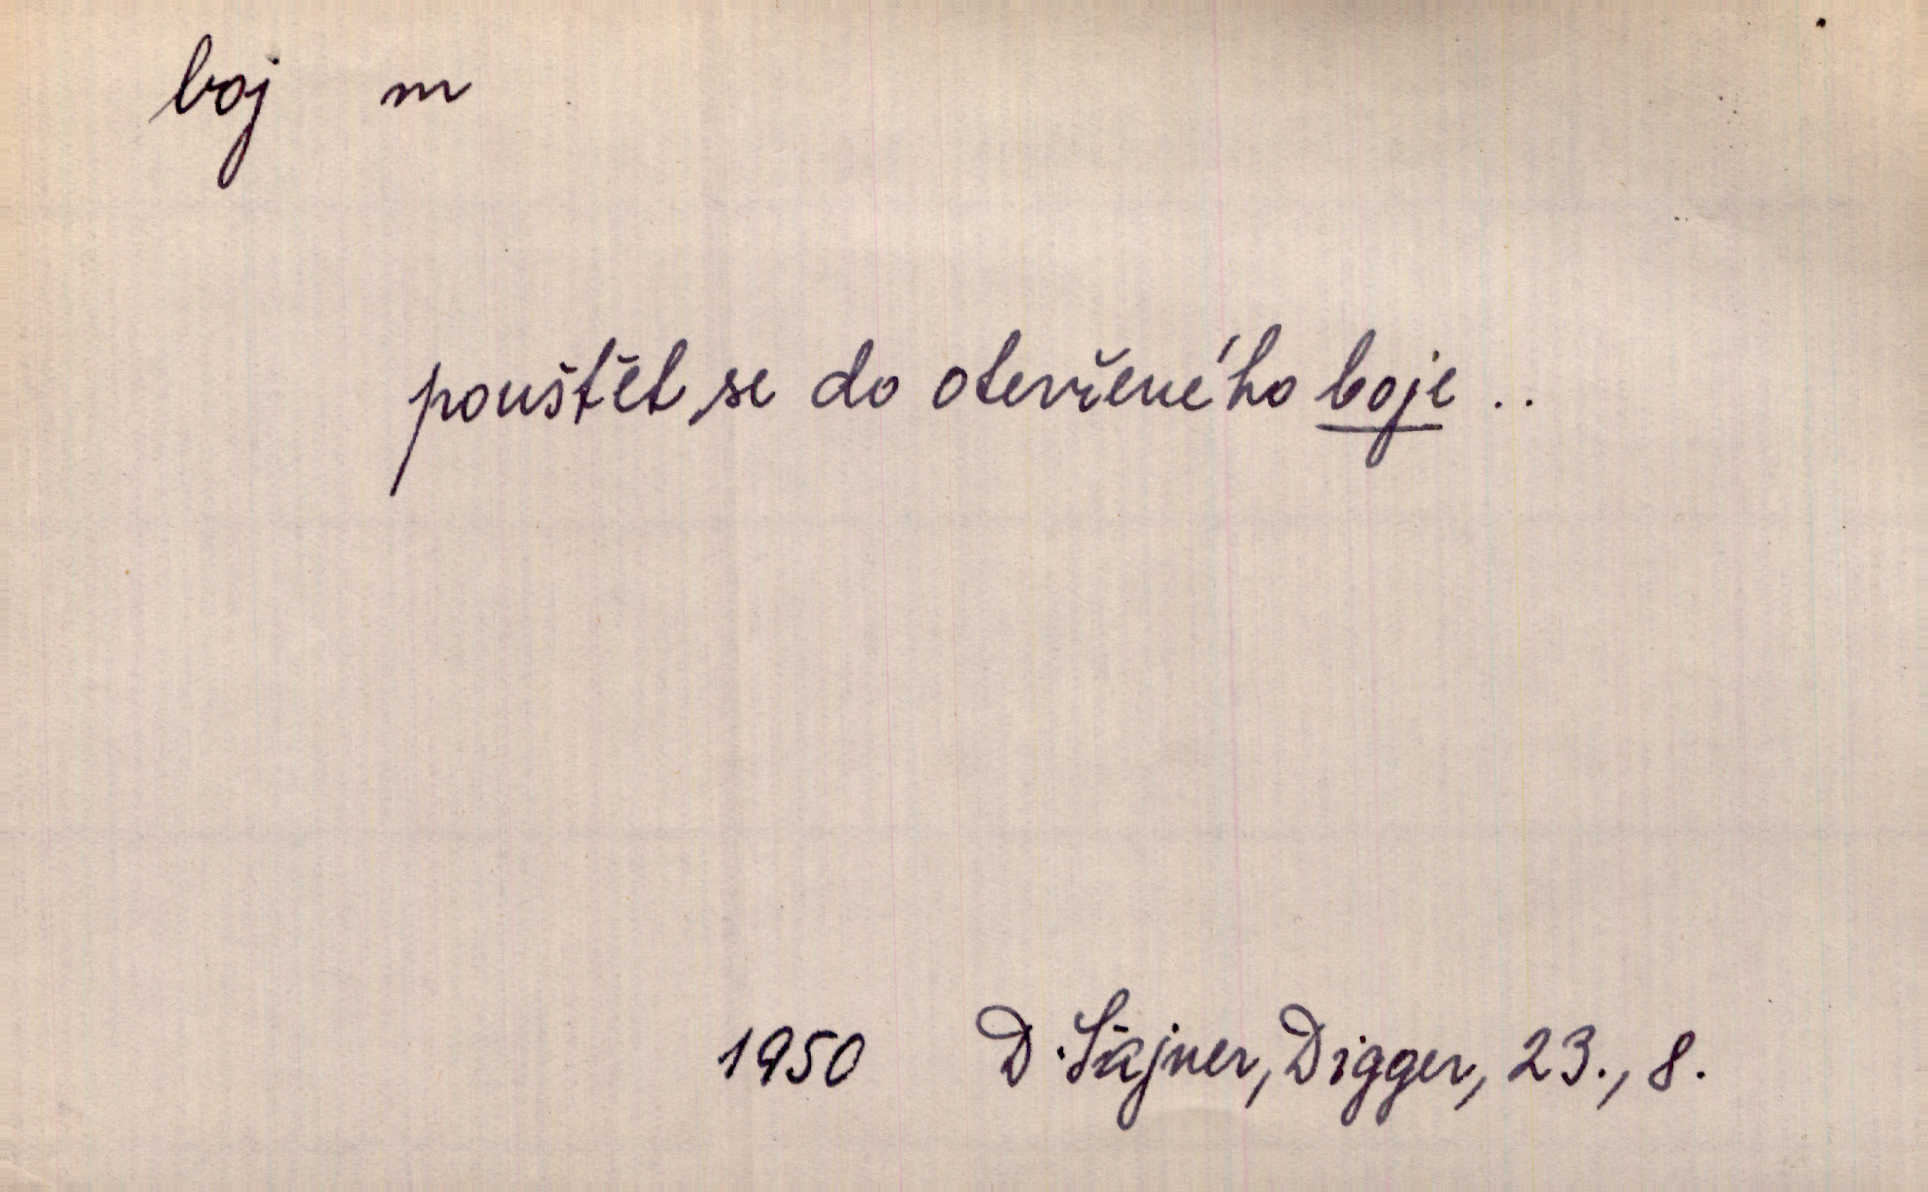 boj m
pouštět se do otevřeného boje ..
1950 D. Šajner, Digger, 23., 8.